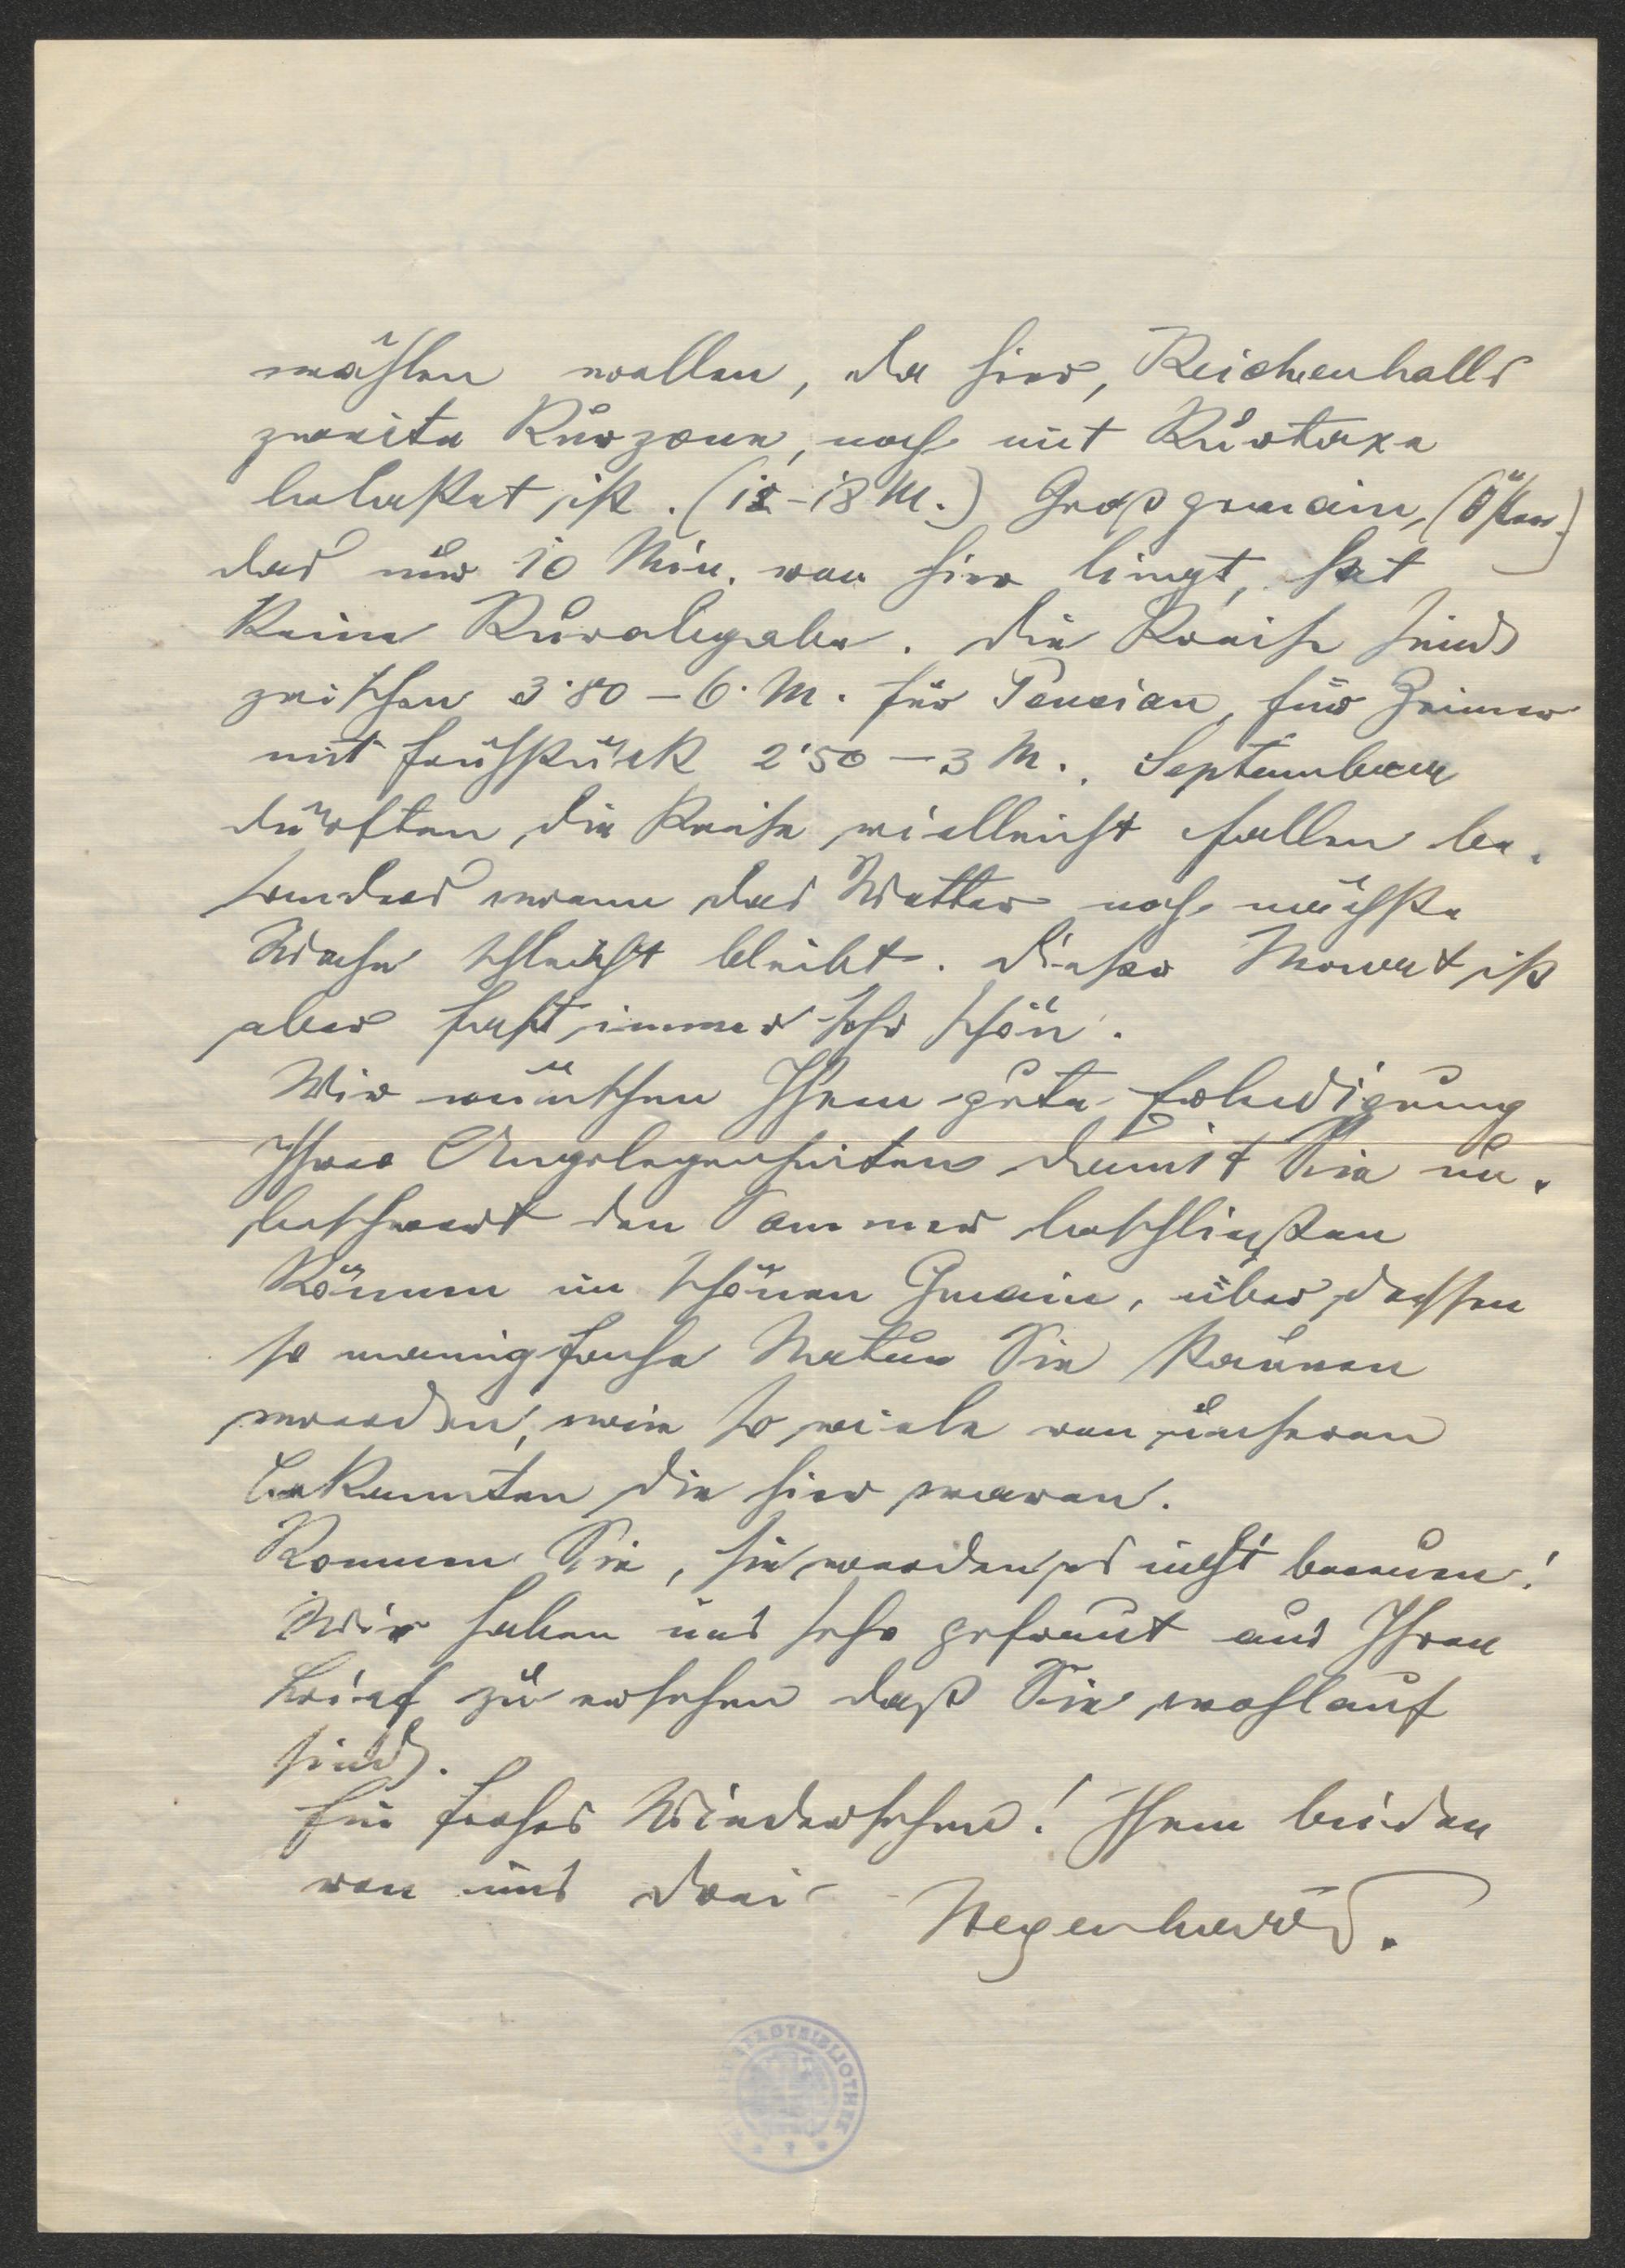 wählen wollen, da hier, Reichenhalls
zweite Kurzone, noch mit Kurtaxe
belastet ist. (12-18 M.) Großgmain, (Öster.)
das nur 10 Min. von hier liegt, hat
keine Kurabgabe. Die Preise sind
zwischen 3·80 – 6· M. für Pension, für Zimmer
mit Frühstück 2'50 – 3 M. September
dürften die Preise vielleicht fallen be-
sonders wenn das Wetter noch nächste
Woche schlecht bleibt. Dieser Monat ist
aber fast immer sehr schön.
Wir wünschen Ihnen gute Erledigung
Ihrer Angelegenheiten damit Sie un-
beschwert den Sommer beschließen
können im schönen Gmain, über dessen
so mannigfache Natur Sie staunen
werden, wie so viele von unseren
Bekannten die hier waren.
Kommen Sie, sie werden es nicht bereuen!
Wir haben uns sehr gefreut aus Ihren
Brief zu ersehen daß Sie wohlauf
sind.
Ein frohes Wiedersehen! Ihnen beiden
von uns drei
STADTBIBLIOTHEK